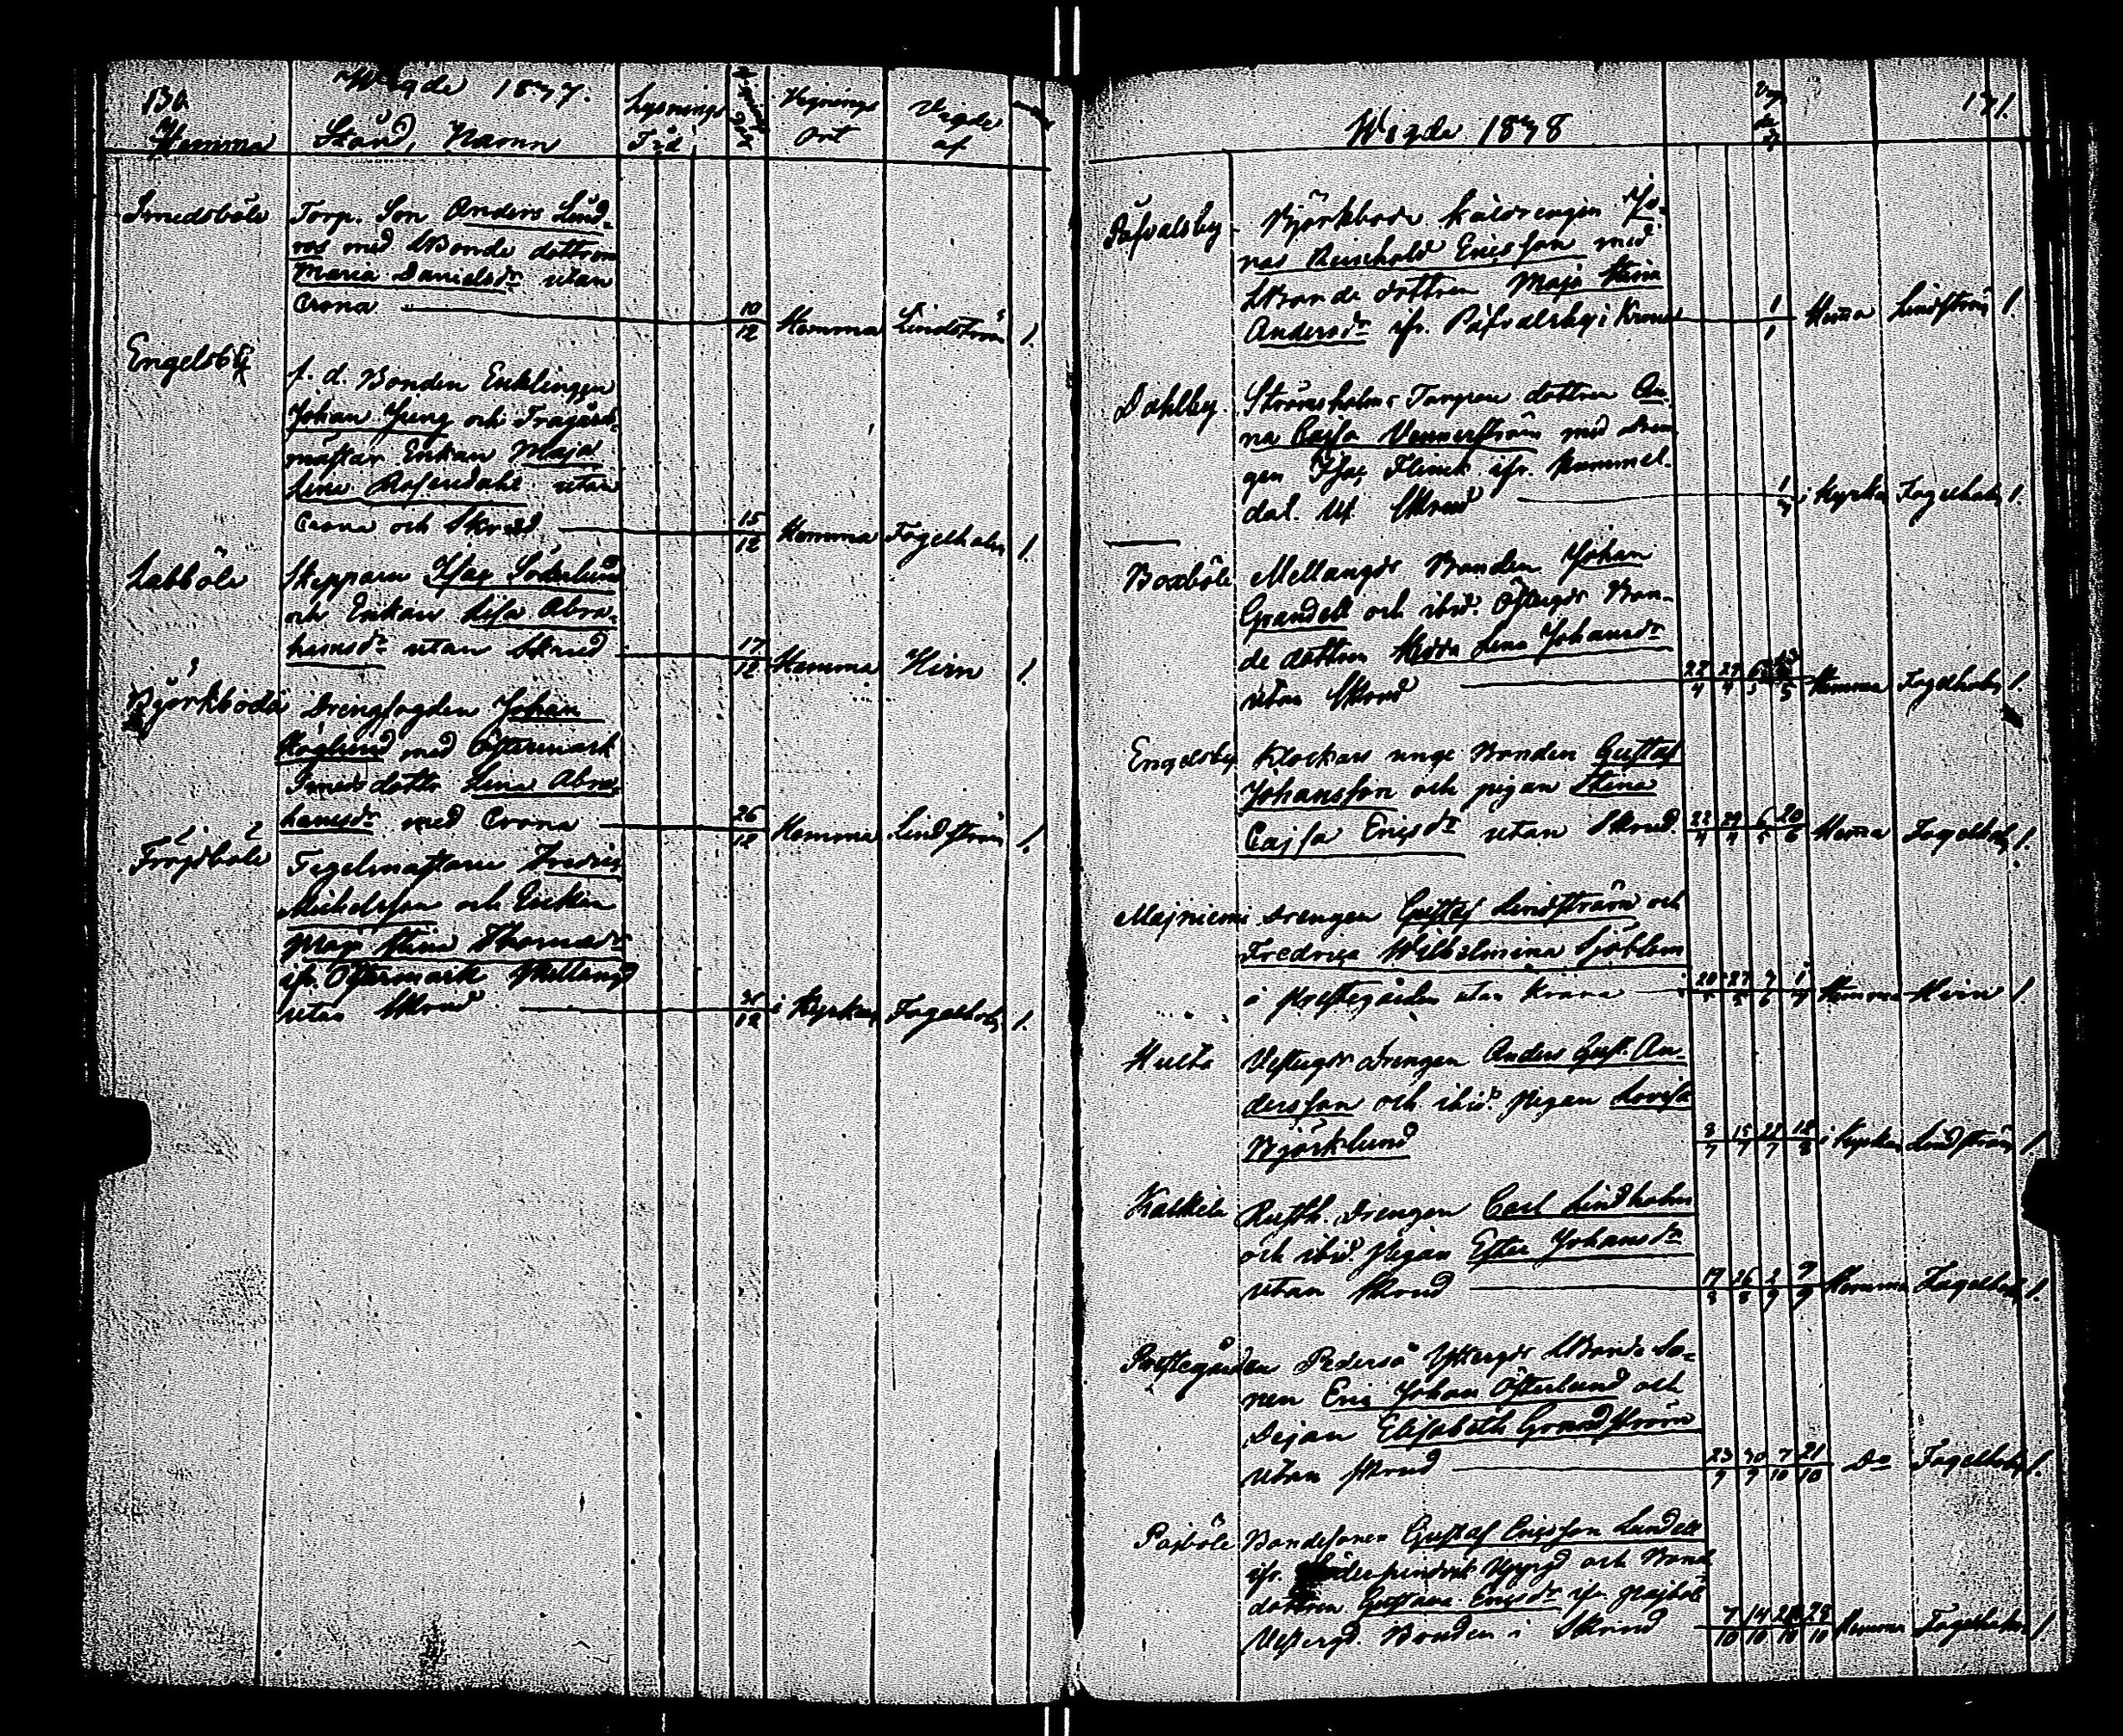 130
Wigde 1877.
Hemma Stånd, Namn Lysnings Tid Vignings Ort Vigde af
Smedsböle Torp. Son Anders Lind-
ros med LBonde dottren
Maria Danielsdr utan
Crona 10/12 Hemma Lindström 1.
Engelsby f. d. Bonden Enklingen
Johan Ljung och Trägårds-
mästar Enkan Maja
Lena Rosendahl utan
Crona och Skrud 15/12 Hemma Fagelholm 1.
Labböle Skepparn Isac Söderlund
och Enkan Lisa Abra-
hamsdr utan Skrud 17/12 Hemma Hirn 1.
Björkboda Drengfogden Johan
Höglund med Östermark
Smeds dottr Lena Abra-
hamsdr med Crona 26/12 Hemma Lindström 1.
Fröjdböle Tegelmästarn Fredric
Mickelsson och Enkan
Maja Stina Thomasdr
ifr. Östermark Mellangd
utan Skrud 31/12 i Kyrkan Fagelholm 1.
131.
Wigde 1878
Påfvalsby Björkboda Kåldrengen Jo-
nas Reinhold Ericsson med
LBonde dottren Maja Stina
Andersdr ifr. Påfvalsby i Krona 1/1 Hema Lindström 1.
Dahlby Strömsholms Torpare dottren An-
na Cajsa Wennerström med Dren-
gen Isac Flinck ifr. Kummel-
dal. Ut. Skrud i Kyrka Fagelholm 1.
Boxböle Mellangds Bonden Johan
Grandell och ibid. Östergds Bon-
de dottren Hedda Lena Johansdr
utan Skrud 22/4 29/4 Hemma Fagelholm 1.
Engelsby Klockars unge Bonden Gustaf
Johansson och pigan Stina
Cajsa Ericsdr utan Skrud. 22/4 29/4 6/5 20/6 Hema Fagelholm 1.
Majniemi Drengen Gustaf Lindström och
Fredrica Wilhelmina Sjöblom
i Prestegården utan Krona 20/5 27/5 7/6 1/7 Hemma Hirn 1.
Hulta Vestergds Drengen Anders Gust. An-
dersson och ibid. Pigan Lovisa
Björklund 8/7 15/7 22/7 12/8 i Kyrkan Lindström 1.
Kalkila Rusth. Drengen Carl Lindholm
och ibid. Pigan Ester Johansdr
utan Skrud 19/8 26/8 2/9 9/9 Hemma Fagelholm 1.
Prestegården Pedersö Yttergds LBonde So-
nen Eric Johan Österlund och
Dejan Elisabeth Grandström
utan Skrud 23/9 30/9 7/10 21/10 Do Fagelholm 1.
Pajböle Bondesonen Gustaf Ericsson Lundell
ifr. Uppgd och Bond
dottren Gustava Ericsdr ifr Pajböle
Vestergd. Bonden i Skrud 7/10 14/10 21/10 28/10 Hemma Fagelholm 1.